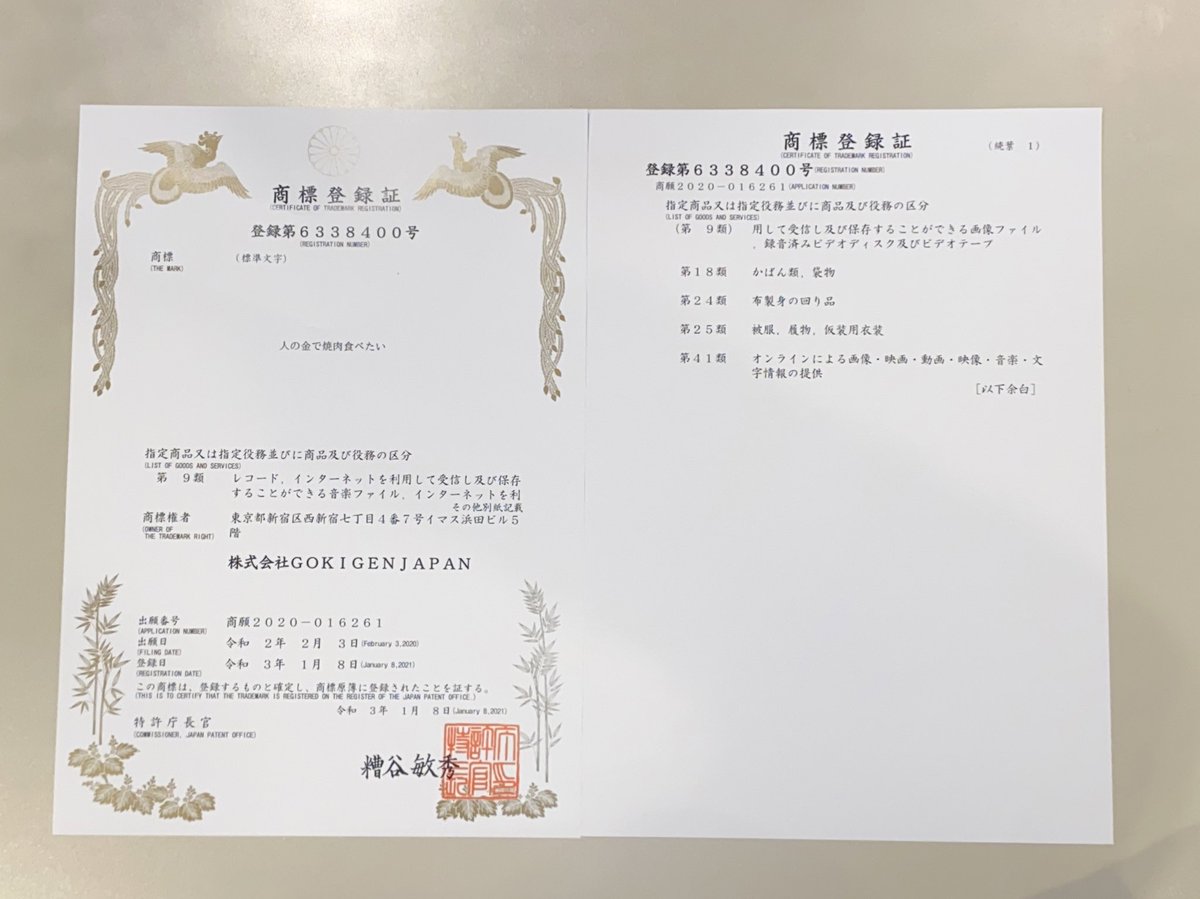 商標登録証
(CERTIFICATE OF TRADEMARK REGISTRATION)
登録第６３３８４００号
(REGISTRATION NUMBER)
商標
(THE MARK)
（標準文字）
人の金で焼肉食べたい
指定商品又は指定役務並びに商品及び役務の区分
(LIST OF GOODS AND SERVICES)
第　９類　レコード，インターネットを利用して受信し及び保存
することができる音楽ファイル，インターネットを利
その他別紙記載
商標権者　東京都新宿区西新宿七丁目４番７号イマス浜田ビル５
階
(OWNER OF
THE TRADEMARK RIGHT)
株式会社ＧＯＫＩＧＥＮＪＡＰＡＮ
出願番号　商願２０２０－０１６２６１
(APPLICATION NUMBER)
出願日　令和　２年　２月　３日(February 3,2020)
(FILING DATE)
登録日　令和　３年　１月　８日(January 8,2021)
(REGISTRATION DATE)
この商標は、登録するものと確定し、商標原簿に登録されたことを証する。
(THIS IS TO CERTIFY THAT THE TRADEMARK IS REGISTERED ON THE REGISTER OF THE JAPAN PATENT OFFICE.)
令和　３年　１月　８日(January 8,2021)
特許庁長官
(COMMISSIONER, JAPAN PATENT OFFICE)
糟谷敏秀
商標登録証
(CERTIFICATE OF TRADEMARK REGISTRATION)
（続葉　１）
登録第６３３８４００号(REGISTRATION NUMBER)
商願２０２０－０１６２６１(APPLICATION NUMBER)
指定商品又は指定役務並びに商品及び役務の区分
(LIST OF GOODS AND SERVICES)
（第　９類）　用して受信し及び保存することができる画像ファイル
，録音済みビデオディスク及びビデオテープ
第１８類　かばん類，袋物
第２４類　布製身の回り品
第２５類　被服，履物，仮装用衣装
第４１類　オンラインによる画像・映画・動画・映像・音楽・文
字情報の提供
［以下余白］